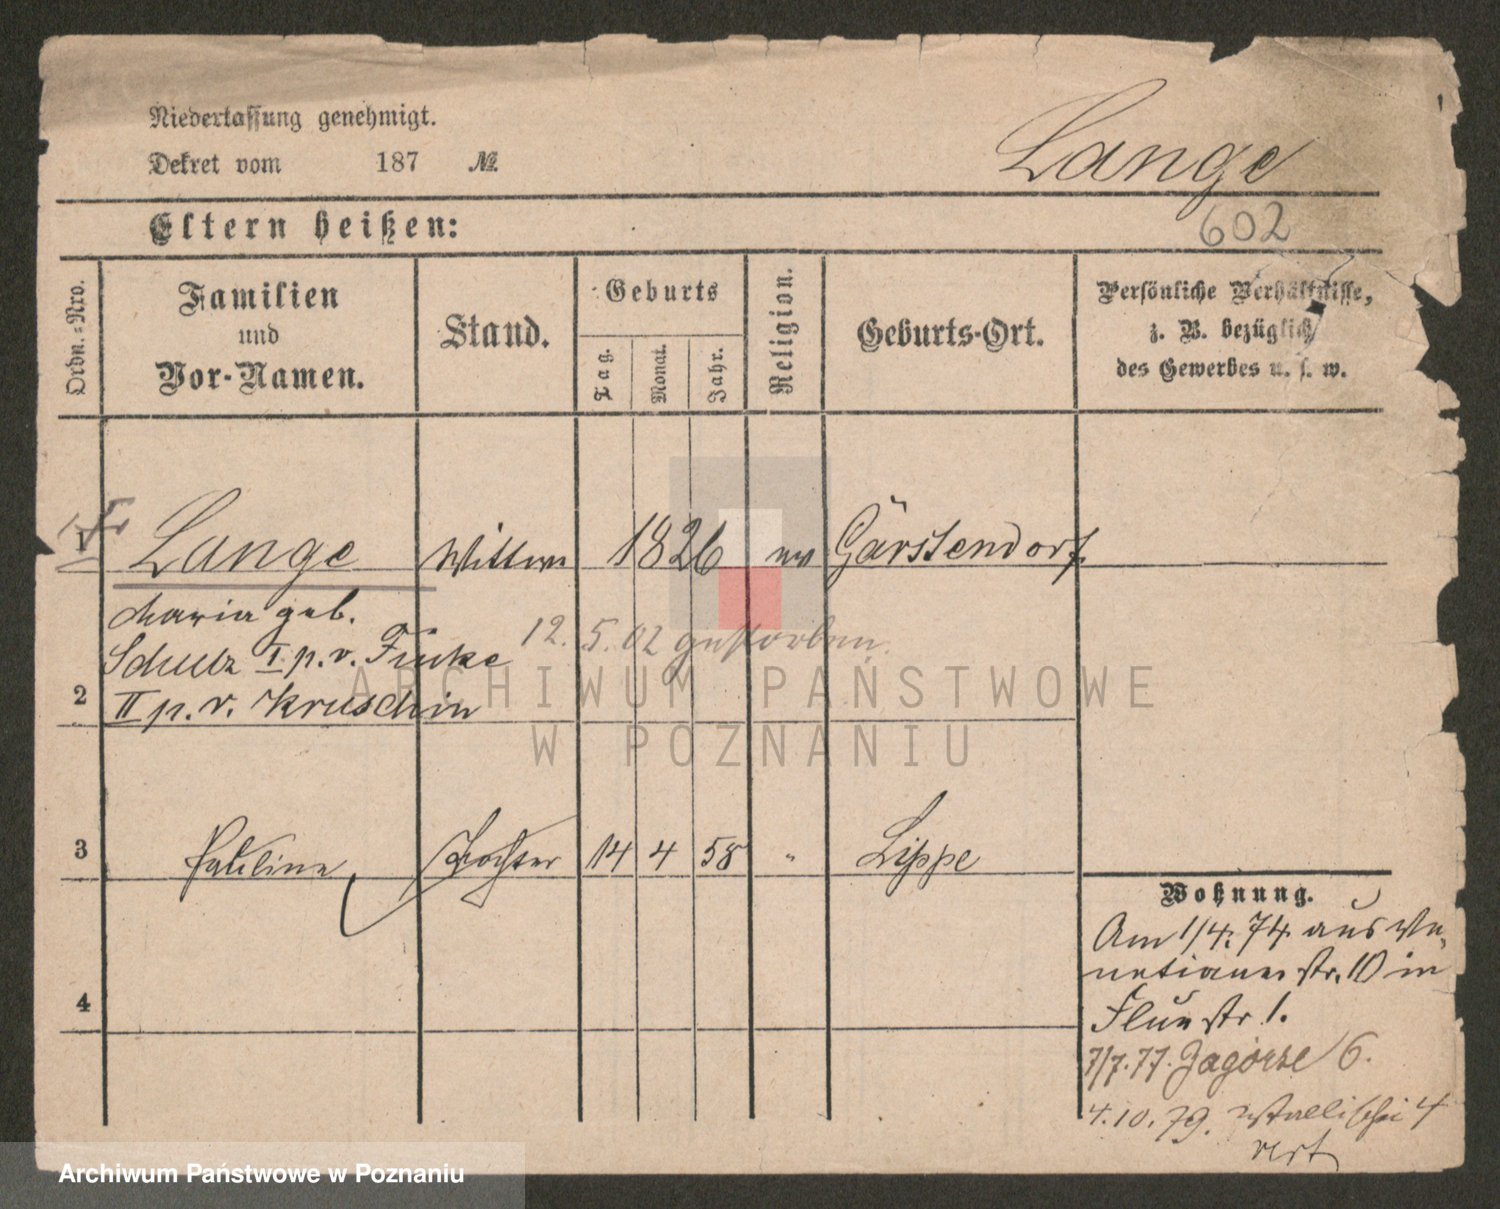 Niederlassung genehmigt.
Dekret vom 187 №
Lange
602
Eltern heißen:
Ordn.=Nro.
Familien
und
Vor-Namen.
Stand.
Geburts
Tag.
Monat.
Jahr.
Religion.
Geburts-Ort.
Persönliche Verhältnisse,
z. B. bezüglich
des Gewerbes u. s. w.
1 Lange Wittwe 1826 ev Gärstendorf
Maria geb.
12. 5. 02 gestorben.
Schulz I p. v. Finke
2 II p. v. Kruschin
ARCHIWUM PAŃSTWOWE
W POZNANIU
3 Pauline Tochter 14 4 58 " Lippe
Wohnung.
Am 1/4. 74 aus Ve-
netianer str. 10 in
4
Flur str 1.
7/7. 77. Zagorze 6.
4. 10. 79. Wallischei 4
Archiwum Państwowe w Poznaniu